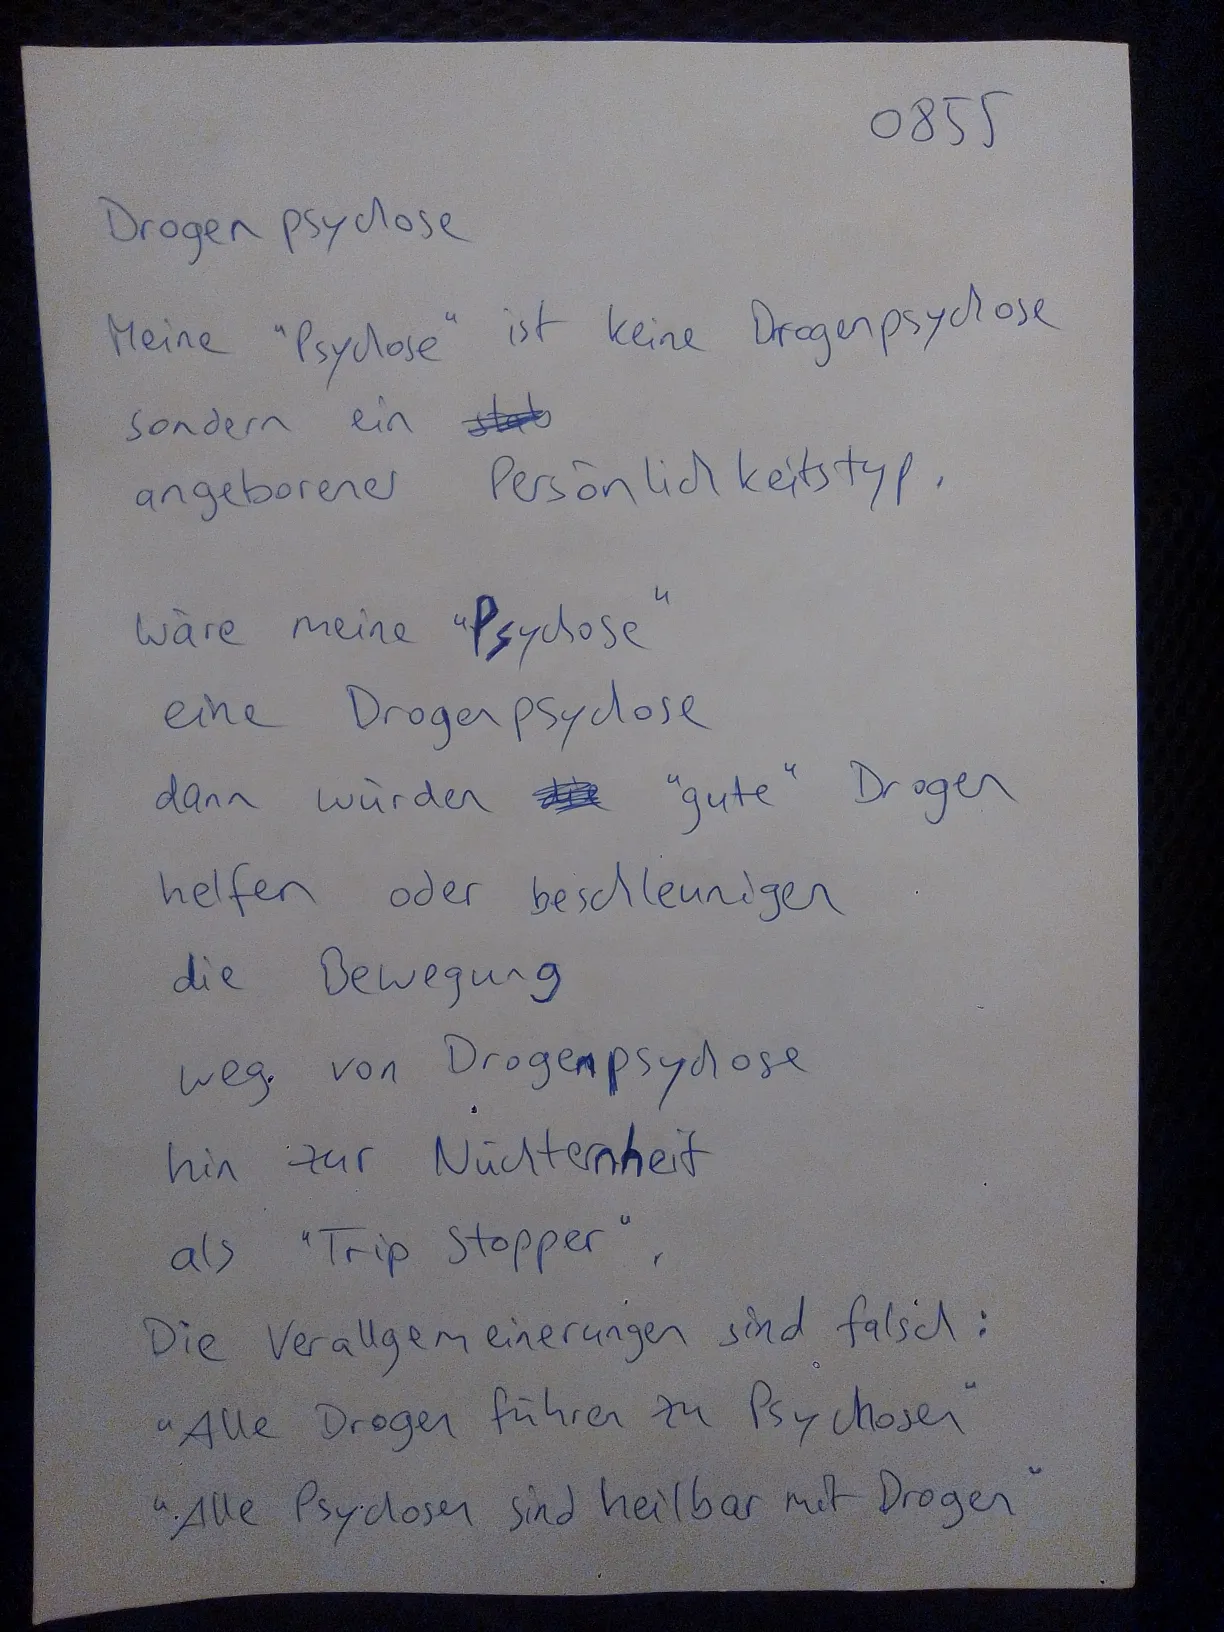 0855
Drogenpsychose
Meine "Psychose" ist keine Drogenpsychose
sondern ein
angeborener Persönlichkeitstyp.
wäre meine "Psychose"
eine Drogenpsychose
dann würden "gute" Drogen
helfen oder beschleunigen
die Bewegung
weg von Drogenpsychose
hin zur Nüchternheit
als "Trip Stopper".
Die Verallgemeinerungen sind falsch:
"Alle Drogen führen zu Psychosen"
"Alle Psychosen sind heilbar mit Drogen"